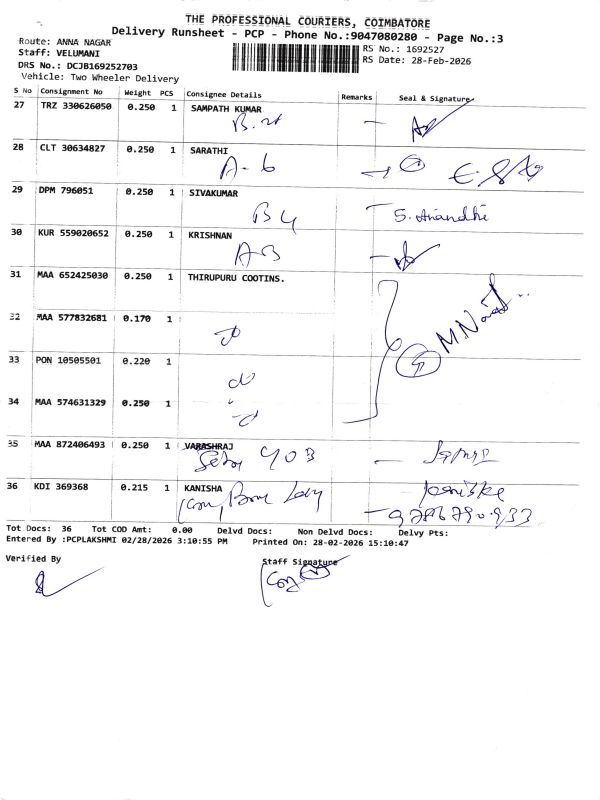 THE PROFESSIONAL COURIERS, COIMBATORE
Delivery Runsheet - PCP - Phone No.:9047080280 - Page No.:3
Route: ANNA NAGAR
Staff: VELUMANI
DRS No.: DCJB169252703
Vehicle: Two Wheeler Delivery
RS No.: 1692527
RS Date: 28-Feb-2026
S No Consignment No Weight PCS Consignee Details Remarks Seal & Signature
27 TRZ 330626050 0.250 1 SAMPATH KUMAR
28 CLT 30634827 0.250 1 SARATHI
A-6
29 DPM 796051 0.250 1 SIVAKUMAR
B4 S. Anandhi
30 KUR 559020652 0.250 1 KRISHNAN
A-3
31 MAA 652425030 0.250 1 THIRUPURU COOTINS.
32 MAA 577832681 0.170 1
do
33 PON 10505501 0.220 1
do
34 MAA 574631329 0.250 1
do
35 MAA 872406493 0.250 1 VARASHRAJ
403
36 KDI 369368 0.215 1 KANISHA
Tot Docs: 36 Tot COD Amt: 0.00 Delvd Docs: Non Delvd Docs: Delvy Pts:
Entered By :PCPLAKSHMI 02/28/2026 3:10:55 PM Printed On: 28-02-2026 15:10:47
Verified By Staff Signature